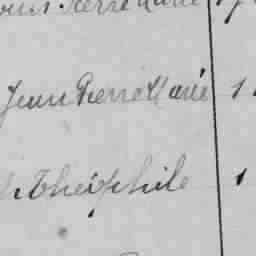 Pierre Marie
Jean Pierre Marie 1
Théophile 1